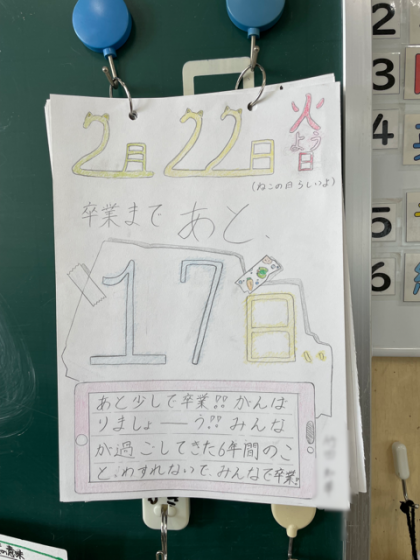 2月 22日 火よう日
(ねこの日らしいよ)
卒業まで あと、
17日!!
あと少しで卒業!! がんば
りましょーーう!! みんな
が過ごしてきた6年間のこ
と、わすれないで、みんなで卒業!
2
3
4
5
6